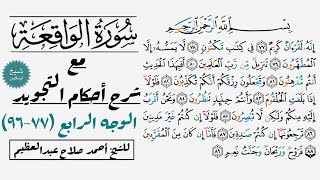 بِسْمِ اللَّهِ الرَّحْمَنِ الرَّحِيمِ
إِنَّهُ لَقُرْءَانٌ كَرِيمٌ ٧٧ فِي كِتَٰبٍ مَّكْنُونٍ ٧٨ لَّا يَمَسُّهُ إِلَّا
الْمُطَهَّرُونَ ٧٩ تَنزِيلٌ مِّن رَّبِّ الْعَٰلَمِينَ ٨٠ أَفَبِهَٰذَا الْحَدِيثِ
أَنتُم مُّدْهِنُونَ ٨١ وَتَجْعَلُونَ رِزْقَكُمْ أَنَّكُمْ تُكَذِّبُونَ ٨٢ فَلَوْلَا
إِذَا بَلَغَتِ الْحُلْقُومَ ٨٣ وَأَنتُمْ حِينَئِذٍ تَنظُرُونَ ٨٤ وَنَحْنُ أَقْرَبُ
إِلَيْهِ مِنكُمْ وَلَٰكِن لَّا تُبْصِرُونَ ٨٥ فَلَوْلَا إِن كُنتُمْ غَيْرَ مَدِينِينَ ٨٦
تَرْجِعُونَهَا إِن كُنتُمْ صَٰدِقِينَ ٨٧ فَأَمَّا إِن كَانَ مِنَ الْمُقَرَّبِينَ
٨٨ فَرَوْحٌ وَرَيْحَانٌ وَجَنَّتُ نَعِيمٍ ٨٩
سُورَةُ الوَاقِعَة
مع
شرح أحكام التجويد
الوجه الرابع (٧٧-٩٦)
للشيخ أحمد صلاح عبدالعظيم